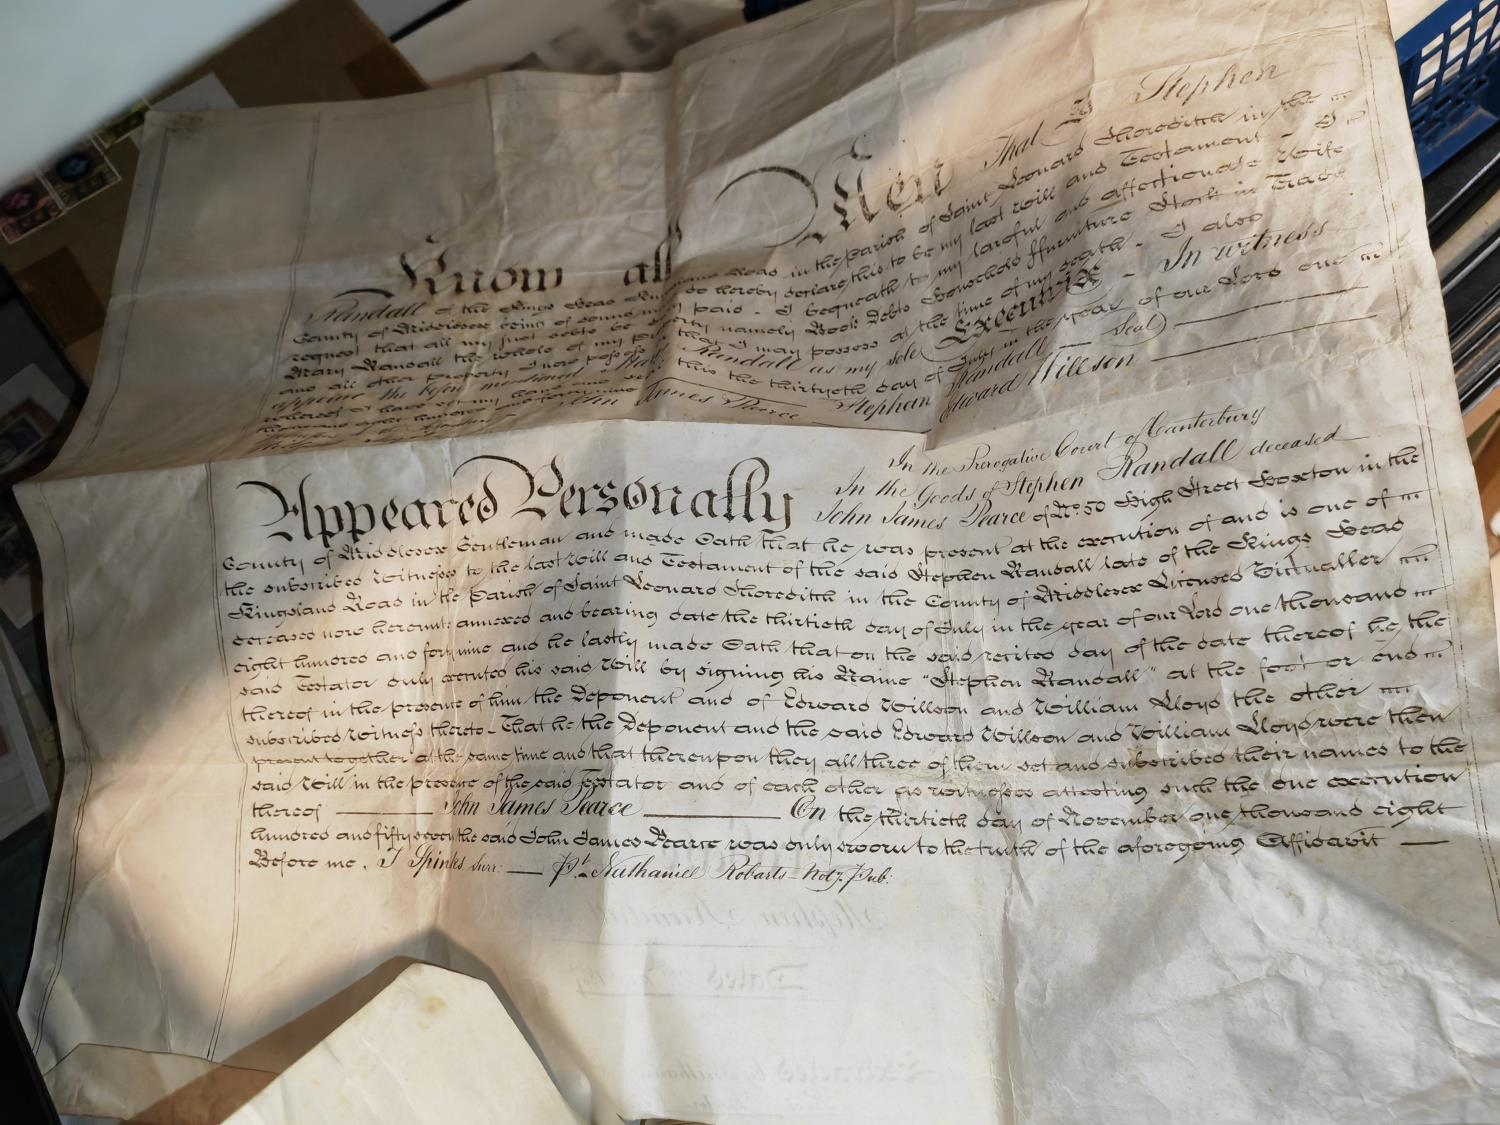 Know all Men That I Stephen
Randall of the Kings Head Kingsland Road in the Parish of Saint Leonard Shoreditch in the
County of Middlesex being of sound mind do hereby declare this to be my last Will and Testament - I
request that all my just debts be paid - I bequeath to my lawful and affectionate Wife
Mary Randall the whole of my property namely Book Debts Household ffurniture Stock in Trade
and all other property I now possess that I may possess at the time of my death - I also
appoint the before mentioned Mary Randall as my sole Executrix - In witness
whereof I have set my hand and seal this the thirtyeth day of July in the year of our Lord one
thousand eight hundred and forty nine Stephen Randall Seal
John James Pearce Edward Willson
In the Prerogative Court of Canterbury
In the Goods of Stephen Randall deceased
Appeared Personally John James Pearce of No. 50 High Street Hoxton in the
County of Middlesex Gentleman and made Oath that he was present at the execution of and is one of
the subscribed Witnesses to the last Will and Testament of the said Stephen Randall late of the Kings Head
Kingsland Road in the Parish of Saint Leonard Shoreditch in the County of Middlesex Licensed Victualler
deceased now hereunto annexed and bearing date the thirtieth day of July in the year of our Lord one thousand
eight hundred and forty nine and he lastly made Oath that on the said recited day of the date thereof he the
said Testator duly executed his said Will by signing his Name "Stephen Randall" at the foot or end
thereof in the presence of him the Deponent and of Edward Willson and William Lloyd the other
subscribed Witness thereto - That he the Deponent and the said Edward Willson and William Lloyd were then
present together at the same time and that thereupon they all three of them set and subscribed their names to the
said Will in the presence of the said Testator and of each other as witnesses attesting such the one execution
thereof John James Pearce On the thirtieth day of November one thousand eight
hundred and fifty seven the said John James Pearce was duly sworn to the truth of the aforegoing Affidavit
Before me. J Spinks Surr: Pt. Nathaniel Robarts Noty. Pub: